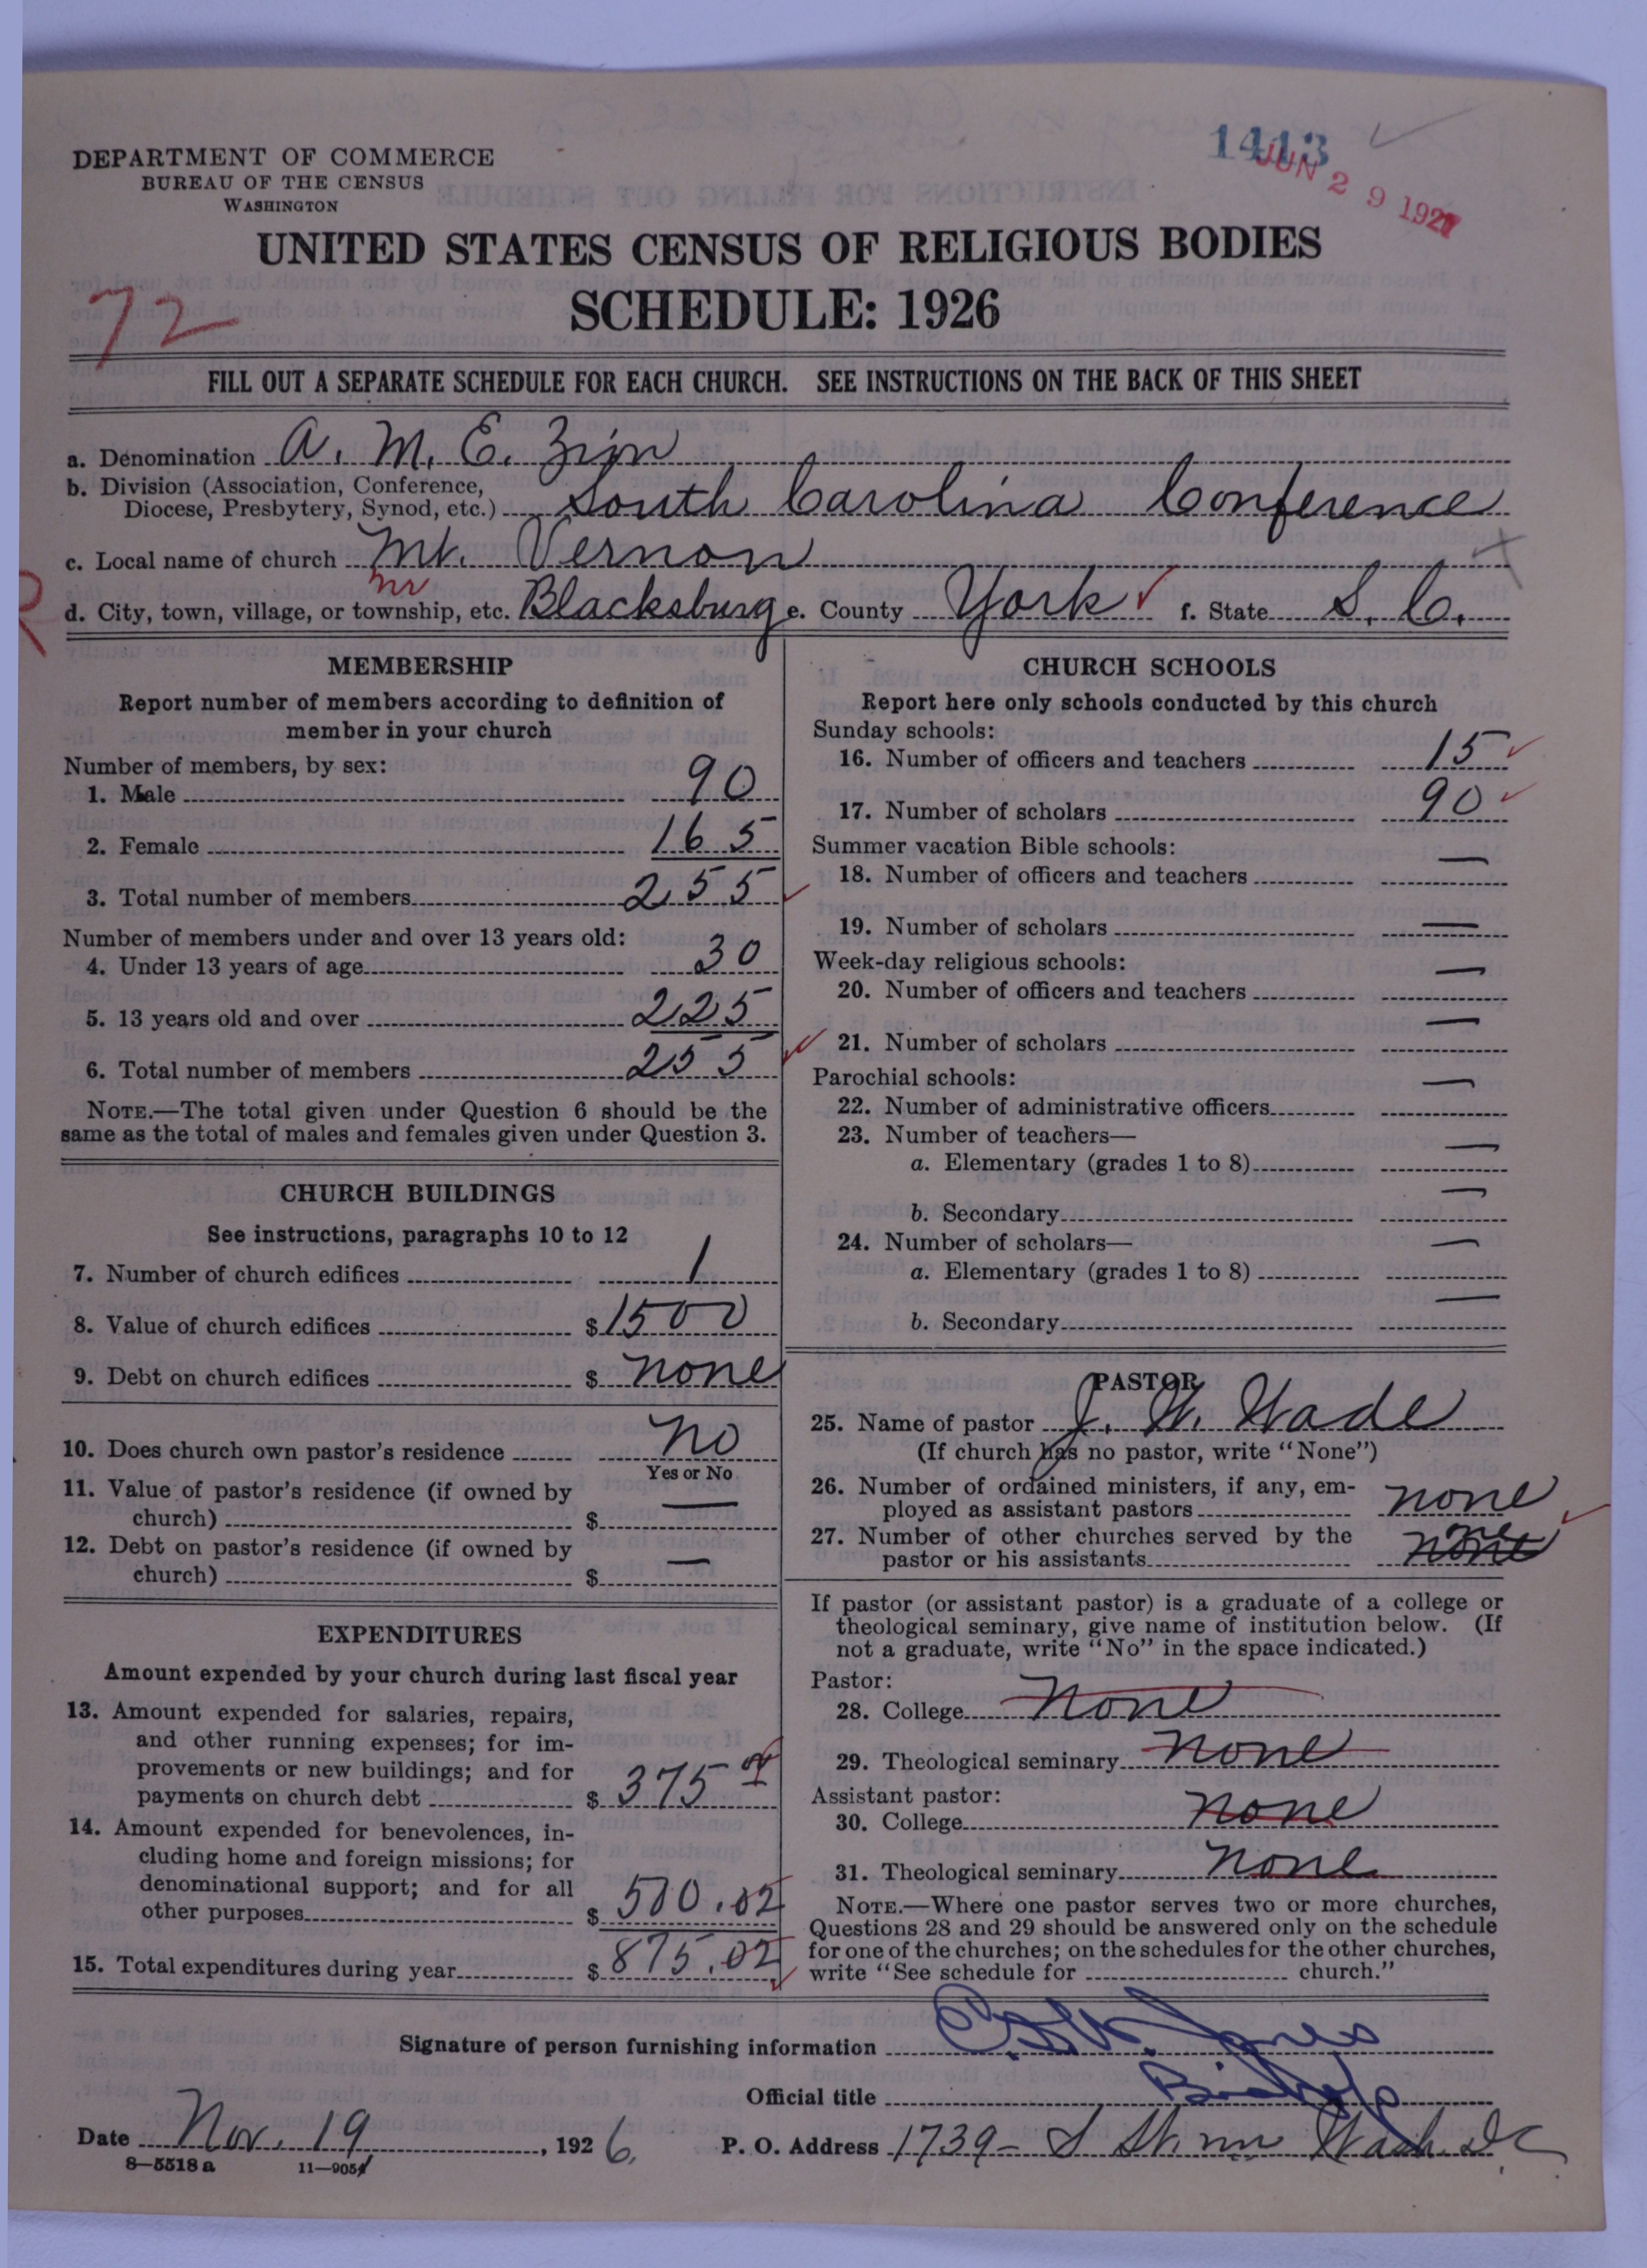 DEPARTMENT OF COMMERCE
BUREAU OF THE CENSUS
WASHINGTON
1413
JUN 29 1927
UNITED STATES CENSUS OF RELIGIOUS BODIES
SCHEDULE: 1926
72
FILL OUT A SEPARATE SCHEDULE FOR EACH CHURCH. SEE INSTRUCTIONS ON THE BACK OF THIS SHEET
a. Denomination A. M. E. Zion
b. Division (Association, Conference, Diocese, Presbytery, Synod, etc.) South Carolina Conference
c. Local name of church Mt. Vernon
nr
R
d. City, town, village, or township, etc. Blacksburg e. County York f. State S. C.
MEMBERSHIP
Report number of members according to definition of
member in your church
Number of members, by sex:
1. Male 90
2. Female 165
3. Total number of members 255
Number of members under and over 13 years old:
4. Under 13 years of age 30
5. 13 years old and over 225
6. Total number of members 255
NOTE.—The total given under Question 6 should be the
same as the total of males and females given under Question 3.
CHURCH BUILDINGS
See instructions, paragraphs 10 to 12
7. Number of church edifices 1
8. Value of church edifices $1500
9. Debt on church edifices $ none
10. Does church own pastor's residence no
Yes or No
11. Value of pastor's residence (if owned by
church) $ —
12. Debt on pastor's residence (if owned by
church) $ —
EXPENDITURES
Amount expended by your church during last fiscal year
13. Amount expended for salaries, repairs,
and other running expenses; for im-
provements or new buildings; and for
payments on church debt $ 375
14. Amount expended for benevolences, in-
cluding home and foreign missions; for
denominational support; and for all
other purposes $ 500.02
15. Total expenditures during year $ 875.02
CHURCH SCHOOLS
Report here only schools conducted by this church
Sunday schools:
16. Number of officers and teachers 15
17. Number of scholars 90
Summer vacation Bible schools:
18. Number of officers and teachers —
19. Number of scholars —
Week-day religious schools:
20. Number of officers and teachers —
21. Number of scholars —
Parochial schools:
22. Number of administrative officers —
23. Number of teachers—
a. Elementary (grades 1 to 8) —
b. Secondary —
24. Number of scholars—
a. Elementary (grades 1 to 8) —
b. Secondary —
PASTOR
25. Name of pastor J. W. Wade
(If church has no pastor, write "None")
26. Number of ordained ministers, if any, em-
ployed as assistant pastors none
27. Number of other churches served by the
pastor or his assistants none
If pastor (or assistant pastor) is a graduate of a college or
theological seminary, give name of institution below. (If
not a graduate, write "No" in the space indicated.)
Pastor:
28. College none
29. Theological seminary none
Assistant pastor:
30. College none
31. Theological seminary none
NOTE.—Where one pastor serves two or more churches,
Questions 28 and 29 should be answered only on the schedule
for one of the churches; on the schedules for the other churches,
write "See schedule for church."
Signature of person furnishing information Jones
Official title Bishop
Date Nov. 19, 1926.
P. O. Address 1739- S St. nw Wash. DC
8-5518 a 11-9054